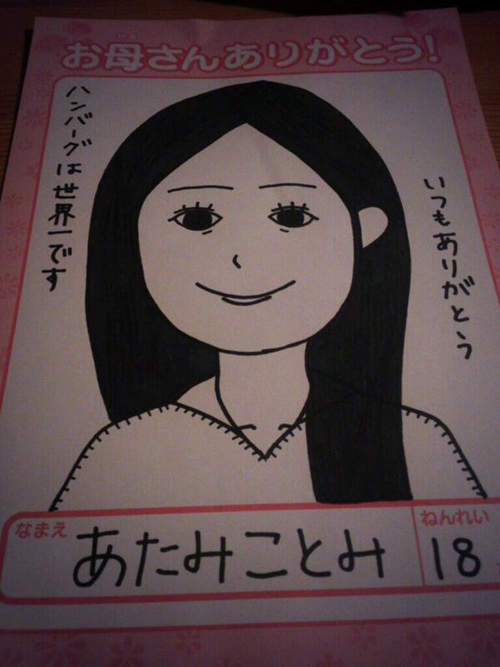 お母さんありがとう!
いつもありがとう
ハンバーグは世界一です
なまえ
あたみことみ
ねんれい
18